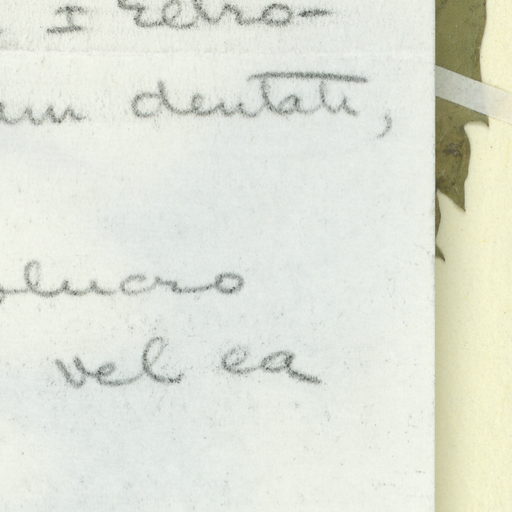 ± retro-
um dentati,
olucro
vel ea